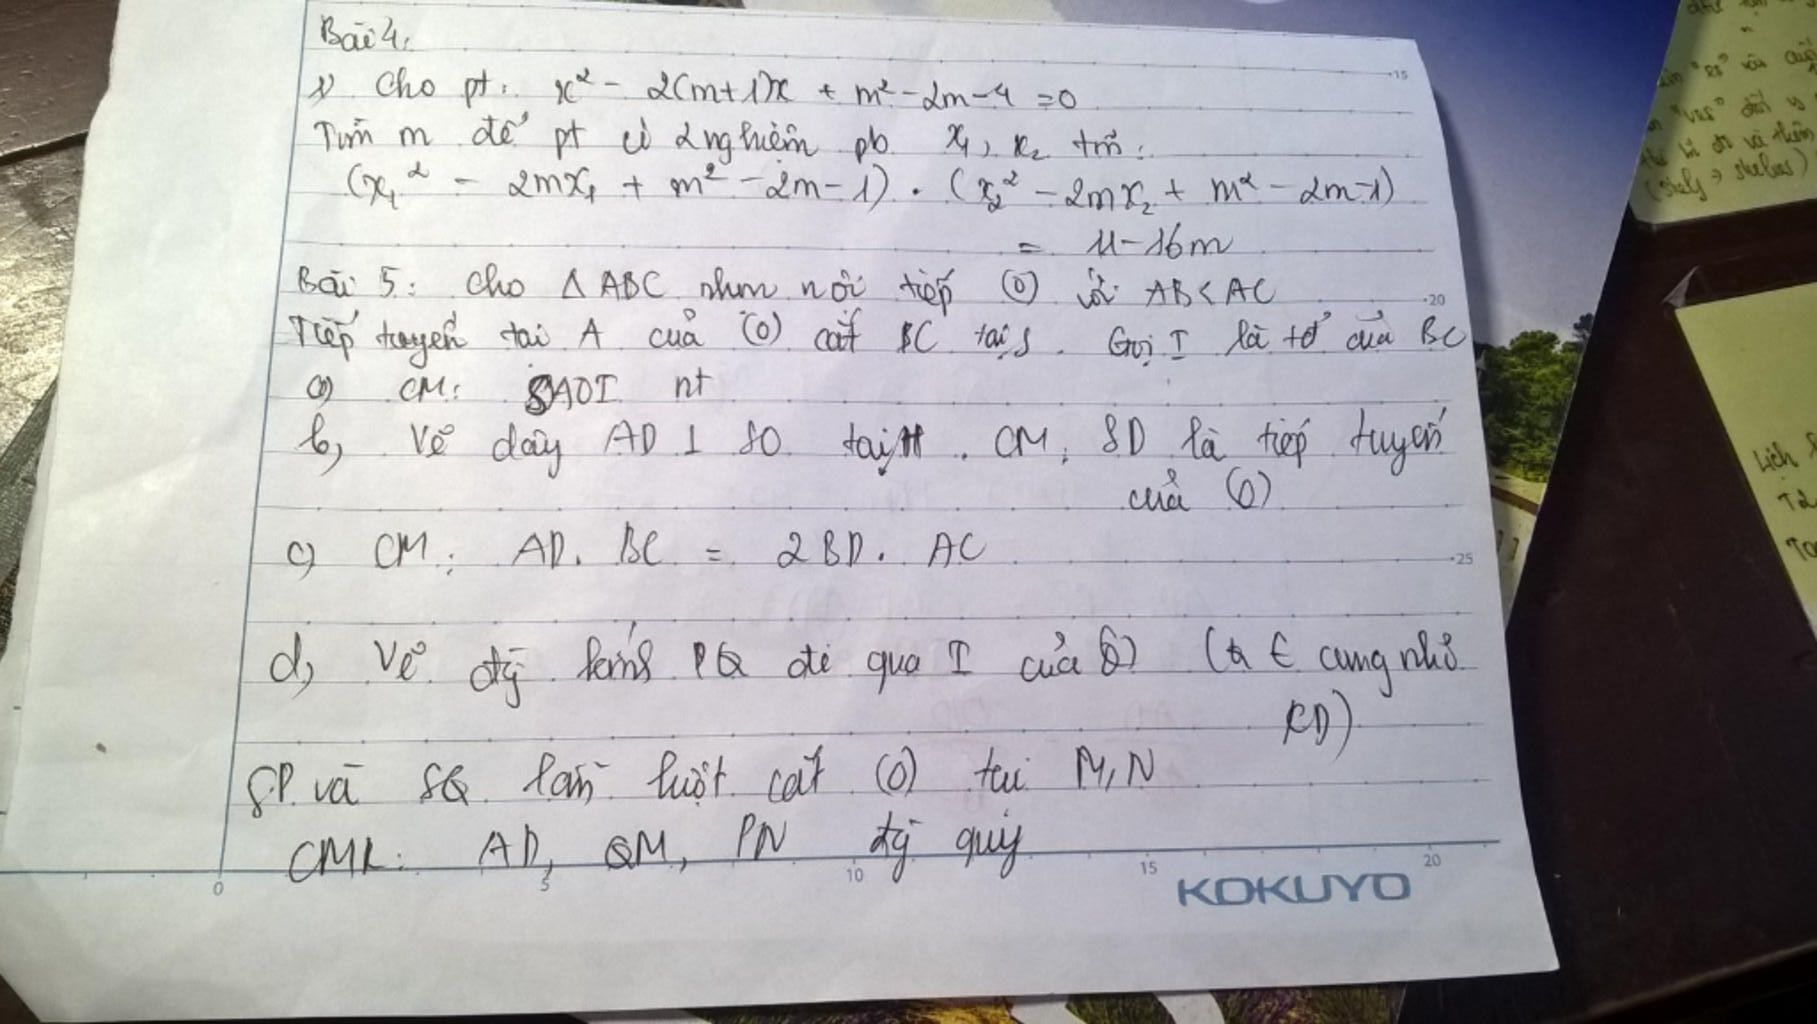 Bài 4:
1) Cho pt: x² - 2(m+1)x + m² - 2m - 4 = 0
Tìm m để pt có 2 nghiệm pb x₁, x₂ tm:
(x₁² - 2mx₁ + m² - 2m - 1) . (x₂² - 2mx₂ + m² - 2m - 1)
= 11 - 16m
Bài 5: Cho Δ ABC nhọn nội tiếp (O) với AB < AC
Tiếp tuyến tại A của (O) cắt BC tại S. Gọi I là tđ của BC
a) CM: SAOI nt
b, Vẽ dây AD ⊥ SO tại H. CM: SD là tiếp tuyến
của (O)
c) CM: AD. BC = 2BD. AC
d, Vẽ đg kính PQ đi qua I của (O) (Q ∈ cung nhỏ
CD)
SP và SQ lần lượt cắt (O) tại M, N
CMR: AD, QM, PN đg quy
15
20
25
0 5 10 15 20
KOKUYO